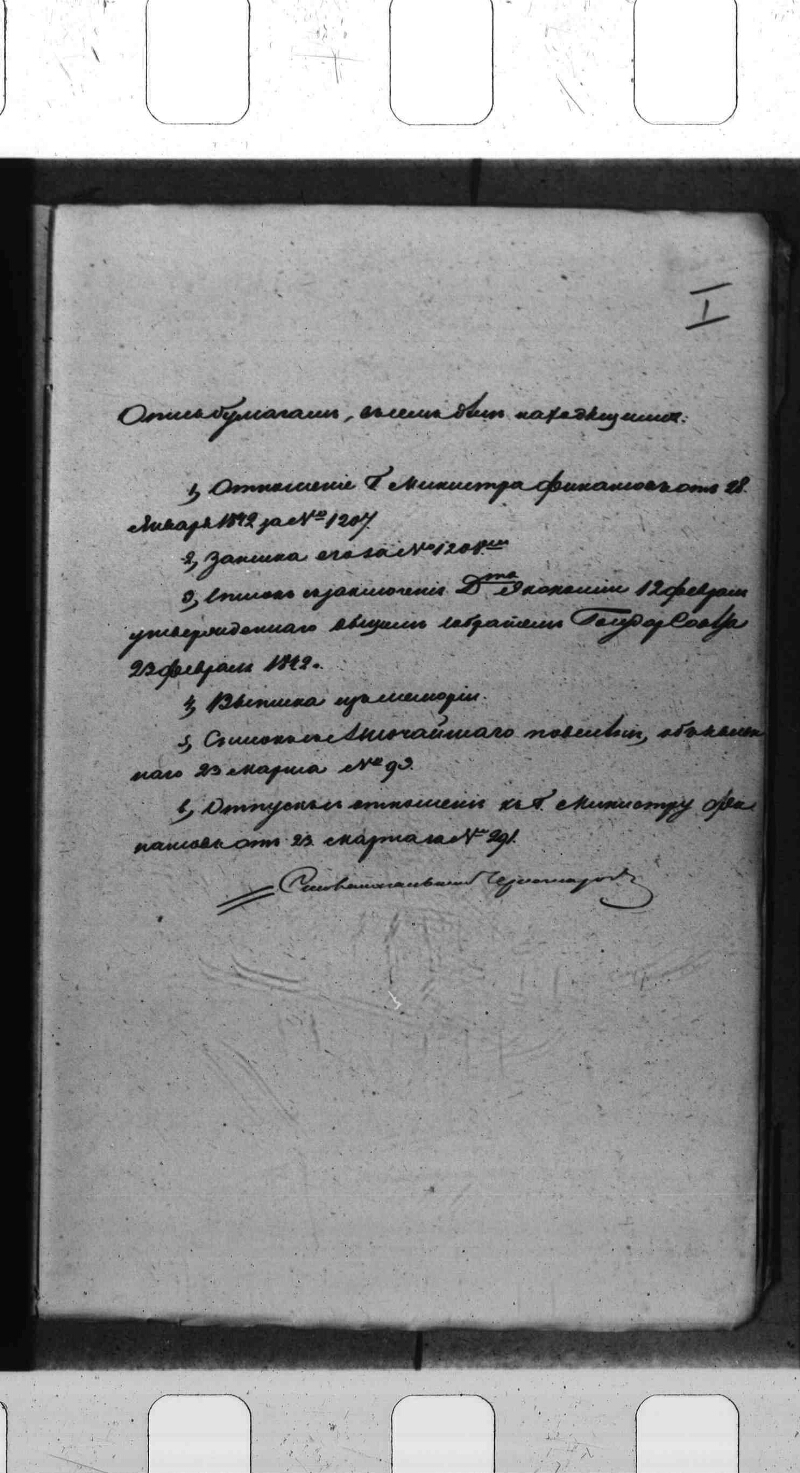 I
Опись бумагамъ, въ семъ дѣлѣ находящимся:
1, Отношеніе Г Министра Финансовъ отъ 28
Января 1842 за № 1207
2, Записка его за № 1208
3, Списокъ съ заключенія Дта Экономіи 12 февраля
утвержденнаго общимъ собраніемъ Государ Совѣта
23 февраля 1842.
4, Выписка изъ меморіи.
5, Списокъ съ Высочайшаго повелѣнія, объявлен
наго 23 марта № 93.
6, Отпускъ отношенія къ Г. Министру Фи
нансовъ отъ 23 марта за № 291.